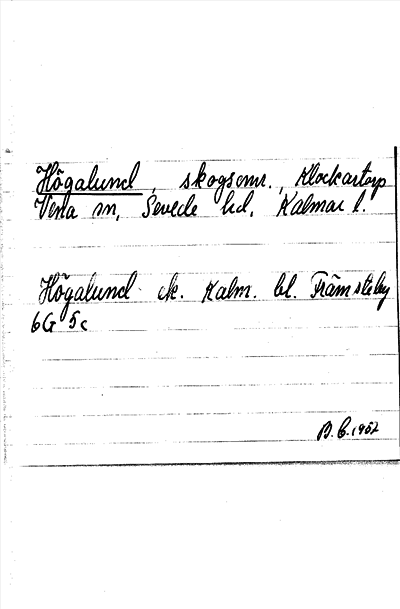 Högalund, skogsomr., Klockartorp
Vena sn, Sevede hd, Kalmar l.
Högalund ek. Kalm. bl. Främsteby
6G 5c
B.C. 1952